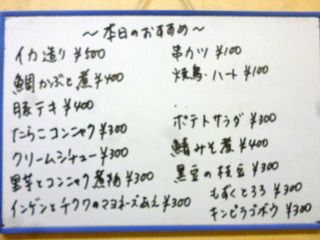 ～本日のおすすめ～
イカ造り ¥500
鯛かぶと煮 ¥400
豚テキ ¥400
たらこコンニャク ¥300
クリームシチュー ¥300
里芋とコンニャク煮物 ¥300
インゲンとチクワのマヨネーズあえ ¥300
串カツ ¥100
焼鳥・ハート ¥100
ポテトサラダ ¥300
鯖みそ煮 ¥400
黒豆の枝豆 ¥300
もずくとろろ ¥300
キンピラゴボウ ¥300